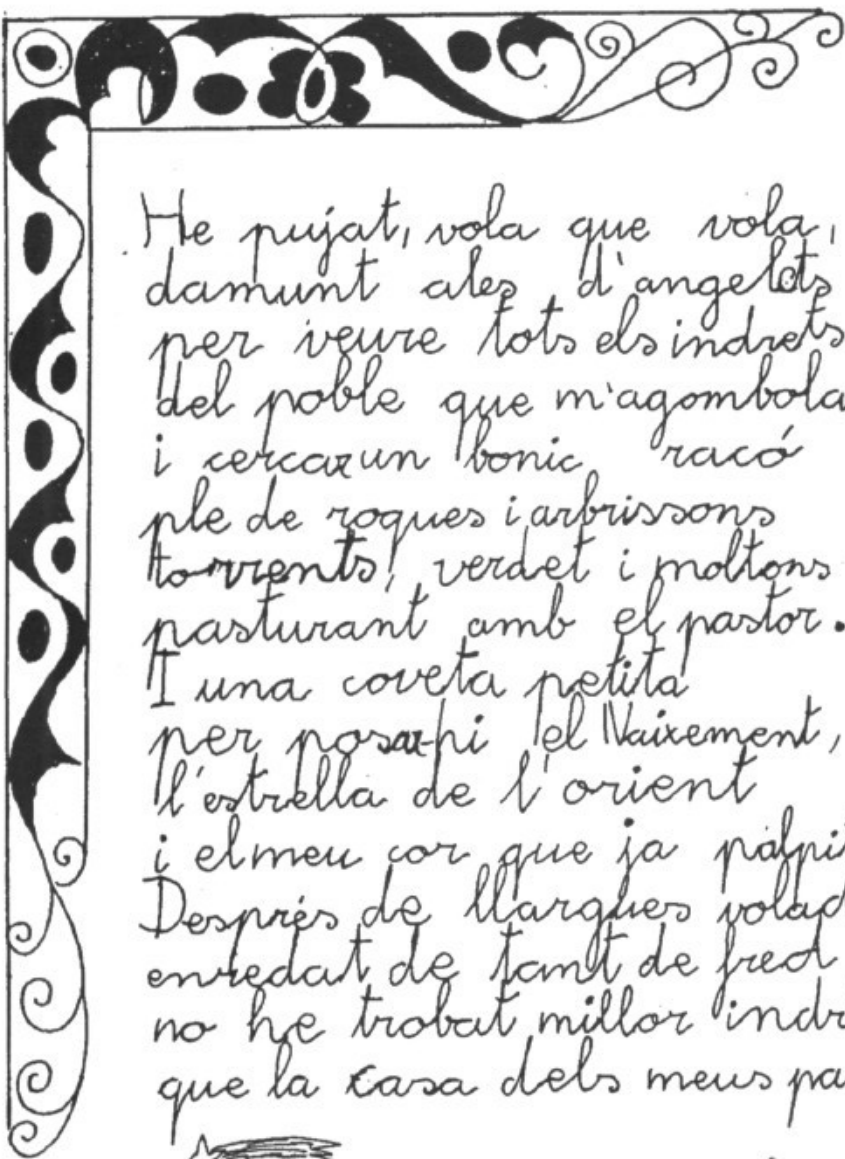 He pujat, vola que vola,
damunt ales d'angelets
per veure tots els indrets
del poble que m'agombola
i cercar un bonic racó
ple de roques i arbrissons
torrents, verdet i moltons
pasturant amb el pastor.
I una coveta petita
per posar-hi el Naixement,
l'estrella de l'orient
i el meu cor que ja palpi
Després de llargues volad
enredat de tant de fred
no he trobat millor indr
que la casa dels meus pa